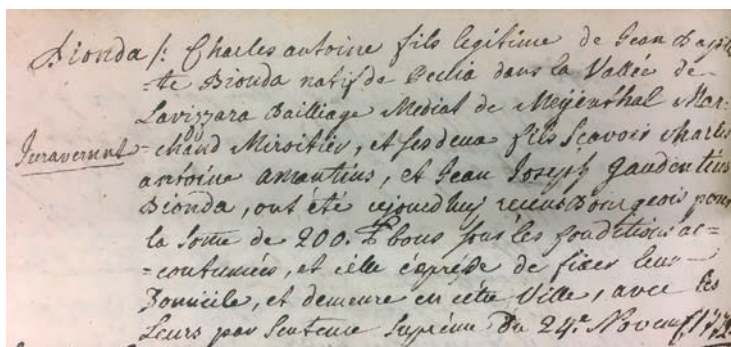 Bionda /: Charles antoine fils legitime de Jean Bapti
-te Bionda natif de Peccia dans la Vallée de
Lavizzara Bailliage Mediat de Meÿenthal Mar-
Juraverunt
=chand Miroitier, et ses deux fils sçavoir Charles
antoine amantius, et Jean Joseph gaudentius
Bionda, ont été cejourdhuj recus Bourgeois pour
la some de 200. bons sous les Conditions ac=
=coutumées, et celle expresse de fixer leur
Domicile, et demeure en cette Ville, avec les
Leurs par Sentence Suprême du 24.e Novem